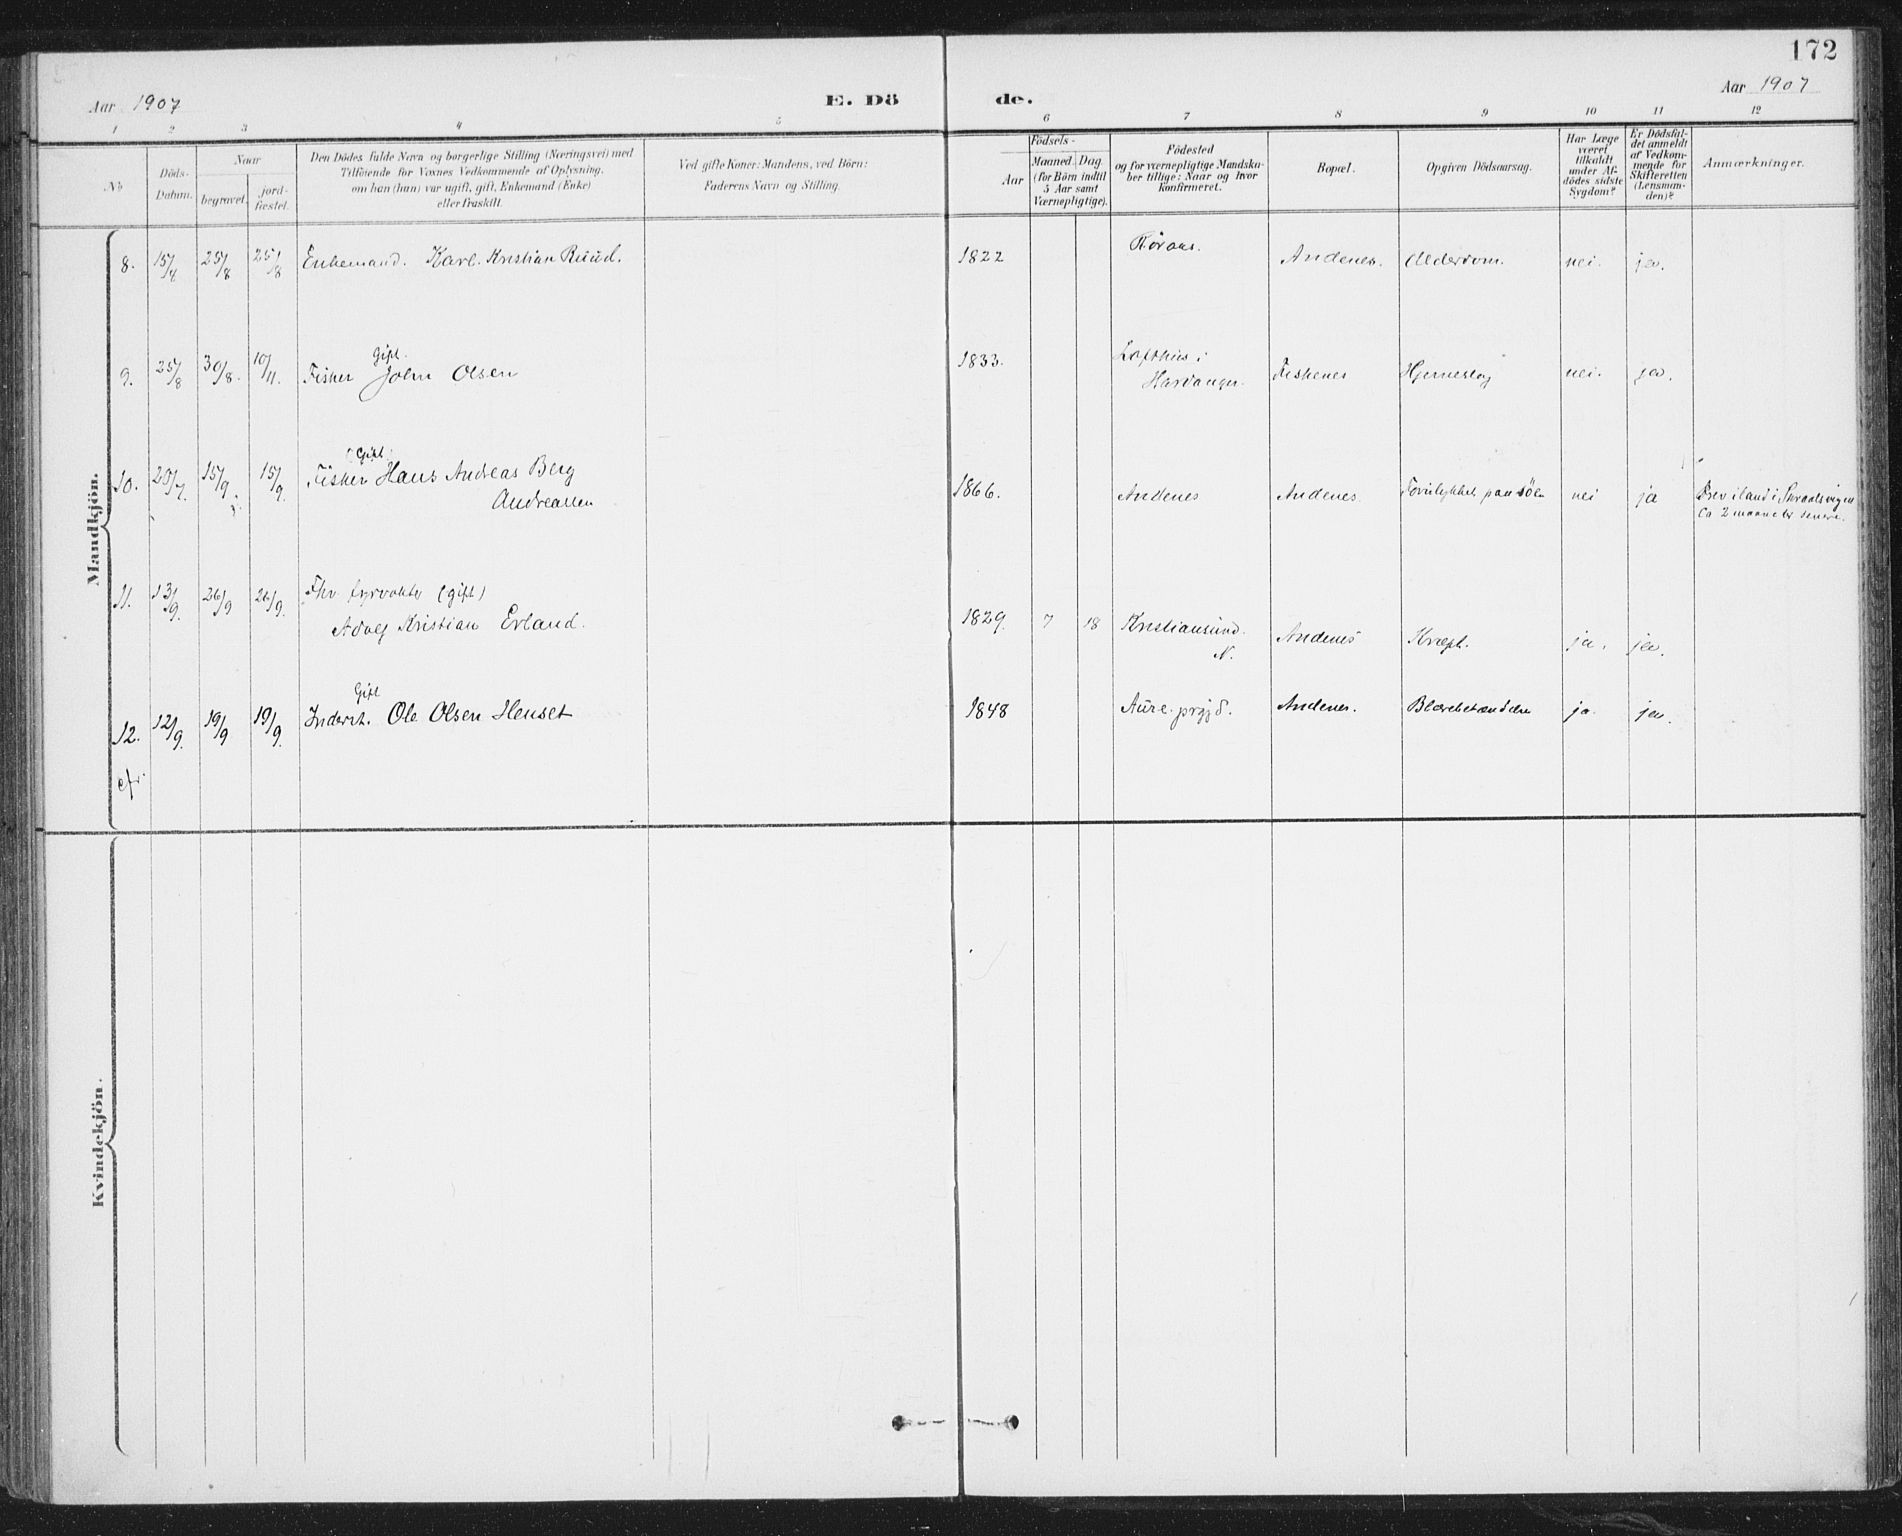 172
Aar 1907
E. Dö
de.
Aar 1907
1 2 3 4 5 6 7 8 9 10 11 12
No
Döds-
Datum.
Naar
begravet.
jord-
fæstet.
Den Dödes fulde Navn og borgerlige Stilling (Næringsvei) med
Tilföiende for Voxnes Vedkommende af Oplysning,
om han (hun) var ugift, gift, Enkemand (Enke)
eller fraskilt.
Ved gifte Koner: Mandens, ved Börn:
Faderens Navn og Stilling.
Födsels-
Aar
Maaned. Dag.
(for Börn indtil
5 Aar samt
Værnepligtige).
Födested
og for værnepligtige Mandska-
ber tillige: Naar og hvor
konfirmeret.
Bopæl.
Opgiven Dödsaarsag.
Har Læge
været
tilkaldt
under Af-
dödes sidste
Sygdom?
Er Dödsfal-
det anmeldt
af Vedkom-
mende for
Skifteretten
(Lensman-
den)?
Anmærkninger.
Mandkjön.
8. 15/8 25/8 25/8 Enkemand. Karl. Kristian Ruud. 1822 Röraas. Andenes. Alderdom. nei. ja.
Gift.
9. 25/8 30/8. 10/11. Fisker John Olsen 1833. Lofthus i
Hardanger. Fiskenes Hjerneslag nei. ja.
Gift
10. 20/7. 15/9. 15/9. Fisker Hans Andreas Berg
Andreassen 1866. Andenes Andenes Forulykket paa söen nei ja Drev iland i
Ca 2 maaneder senere.
11. 13/9. 26/9 26/9. Fhv. fyrvokter (gift)
Adolf Kristian Erland. 1829. 7 18 Kristiansund
N. Andenes Kræft. ja. ja.
Gift
12. 12/9. 19/9 19/9. Inderst. Ole Olsen Henset 1848 Aure prgjd. Andenes. Blærebetændelse ja ja.
cfr.
Kvindekjön.